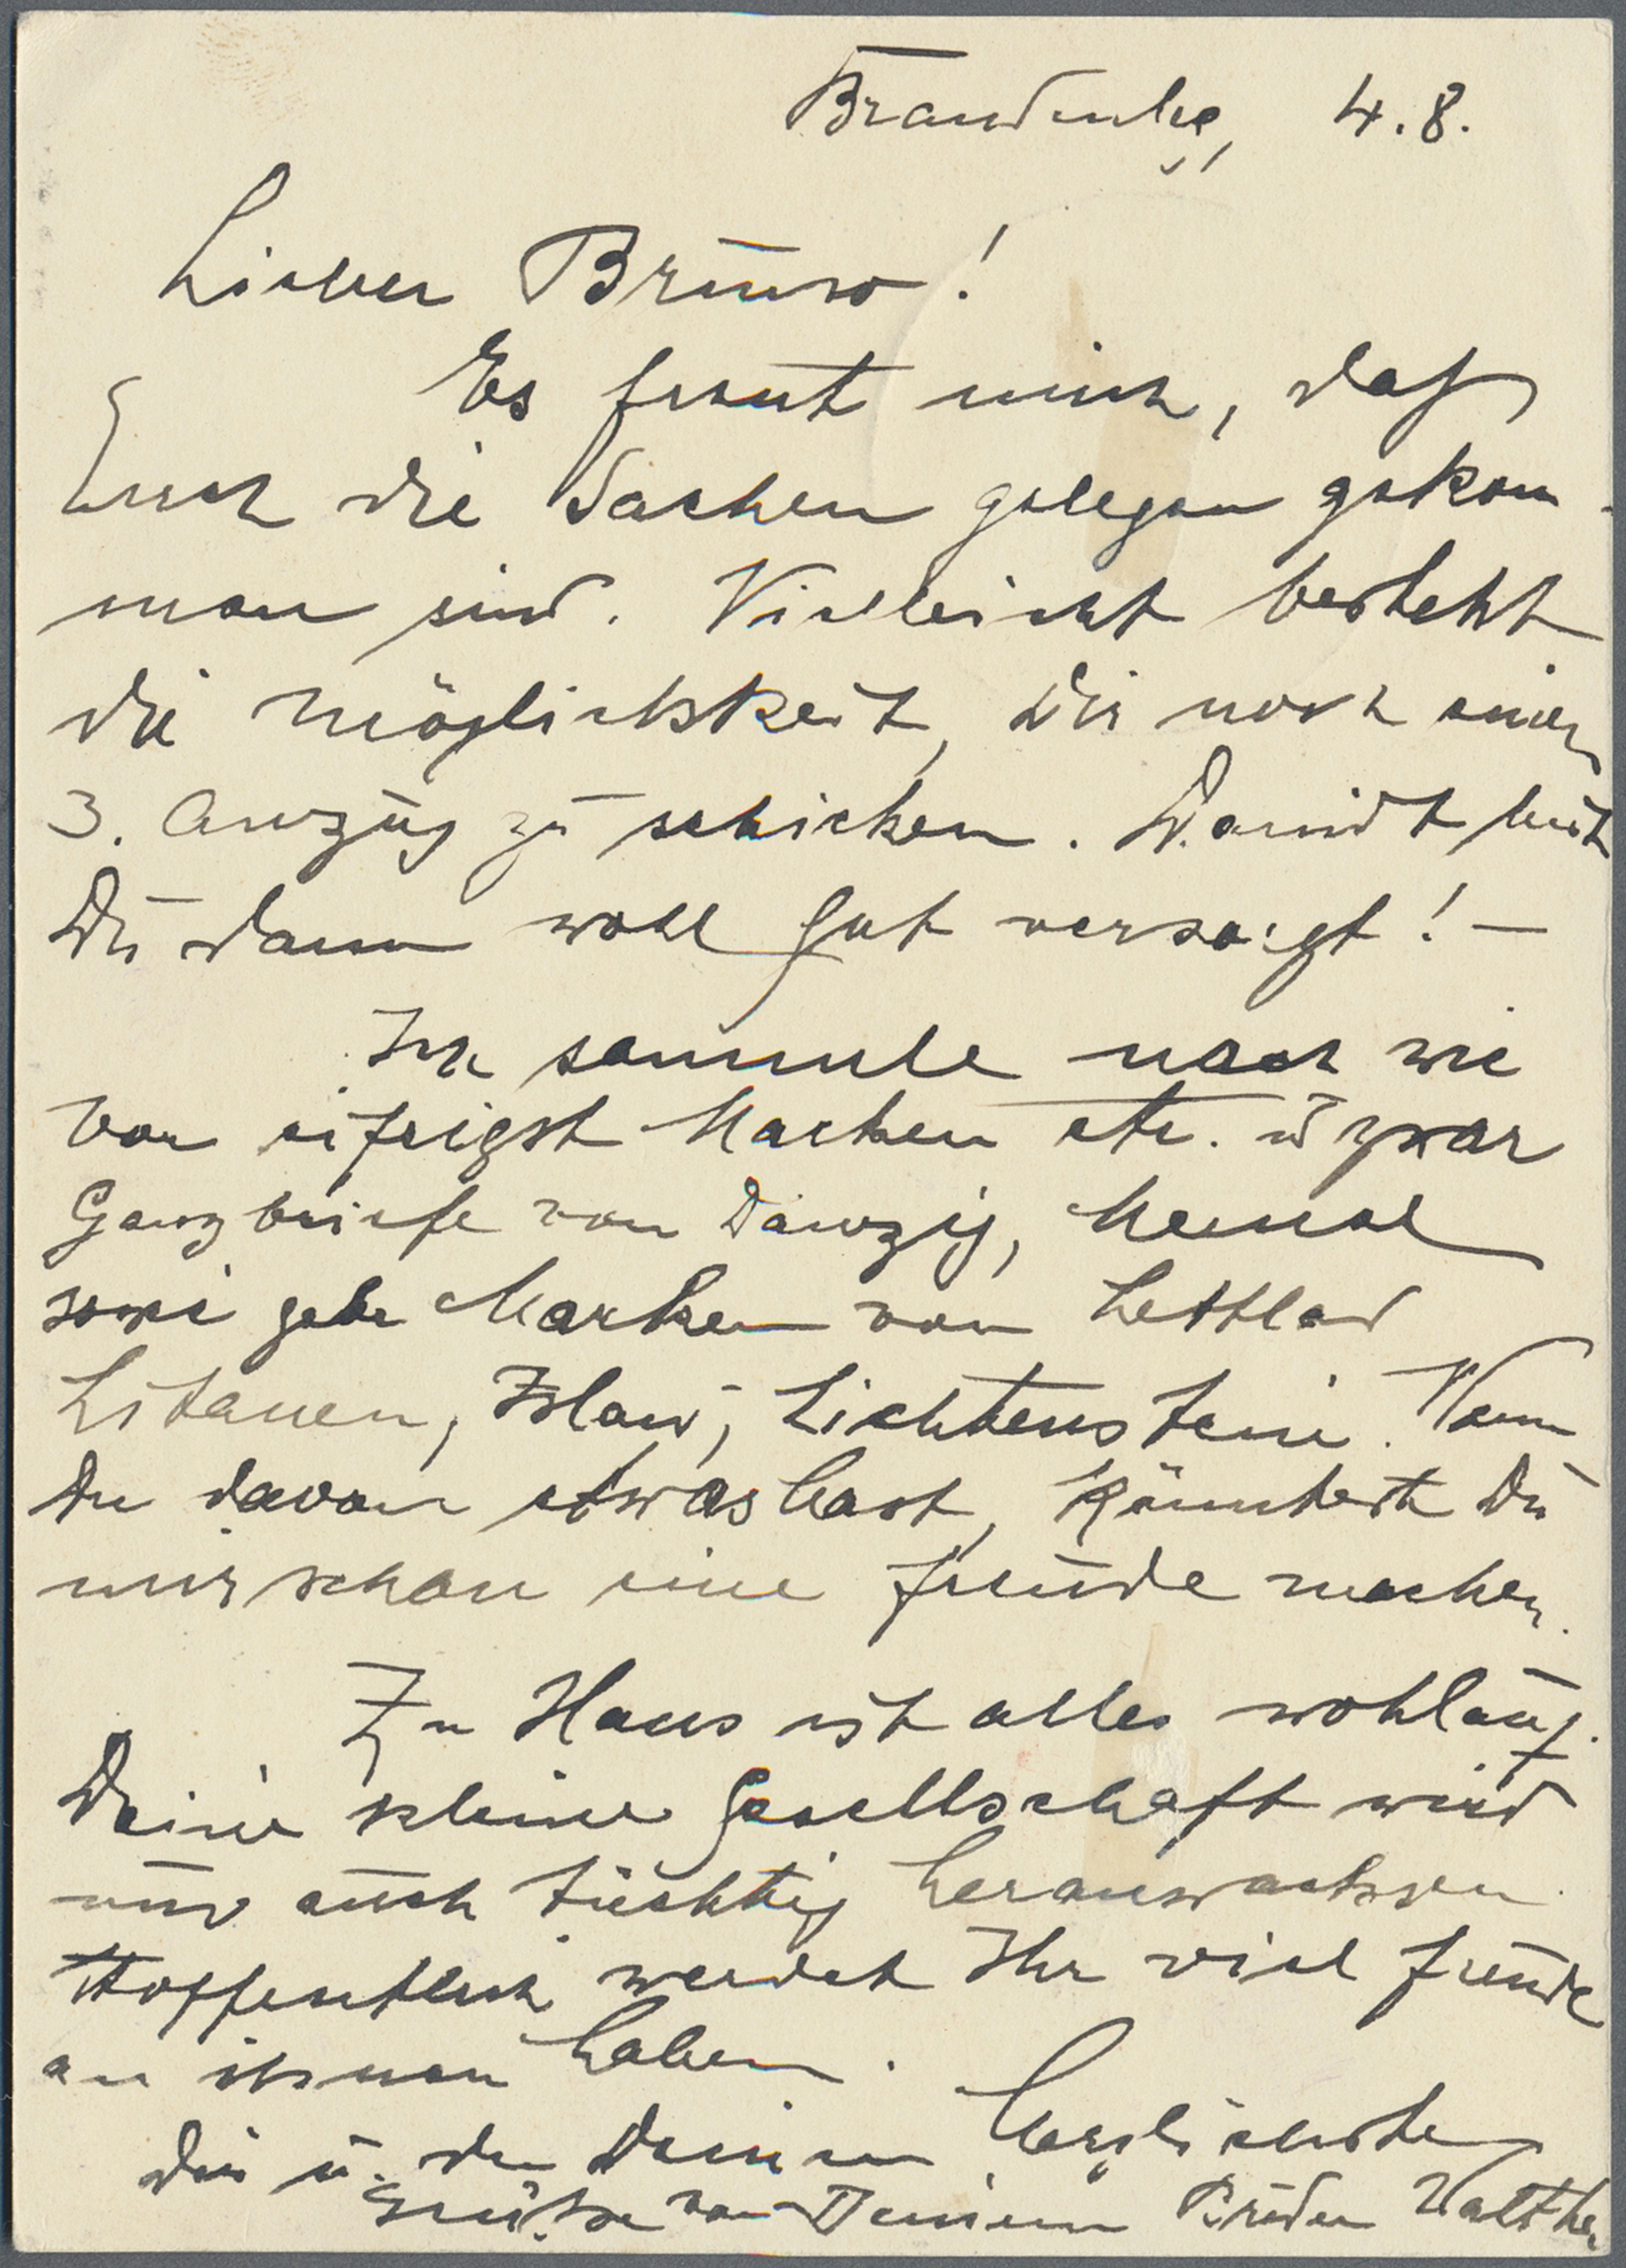 Brandenbg, 4.8.
Lieber Bruno!
Es freut mich, daß
Euch die Sachen gelegen gekom-
men sind. Vielleicht besteht
die Möglichkeit, Dir noch einen
3. Anzug zu schicken. Damit bist
Du dann wohl gut versorgt! –
Ich sammele nach wie
vor eifrigst Marken etc. u zwar
Ganzbriefe von Danzig, Memel
sowie gebr Marken von Lettland
Litauen, Island, Lichtenstein. Wenn
Du davon etwas hast, könntest Du
mir schon eine Freude machen.
Zu Haus ist alles wohlauf.
Deine kleine Gesellschaft wird
nun auch tüchtig heranwachsen.
Hoffentlich werdet Ihr viel Freude
an ihnen haben.
Dir u. den Deinen herzlichste
Grüße von Deinem Bruder Walther